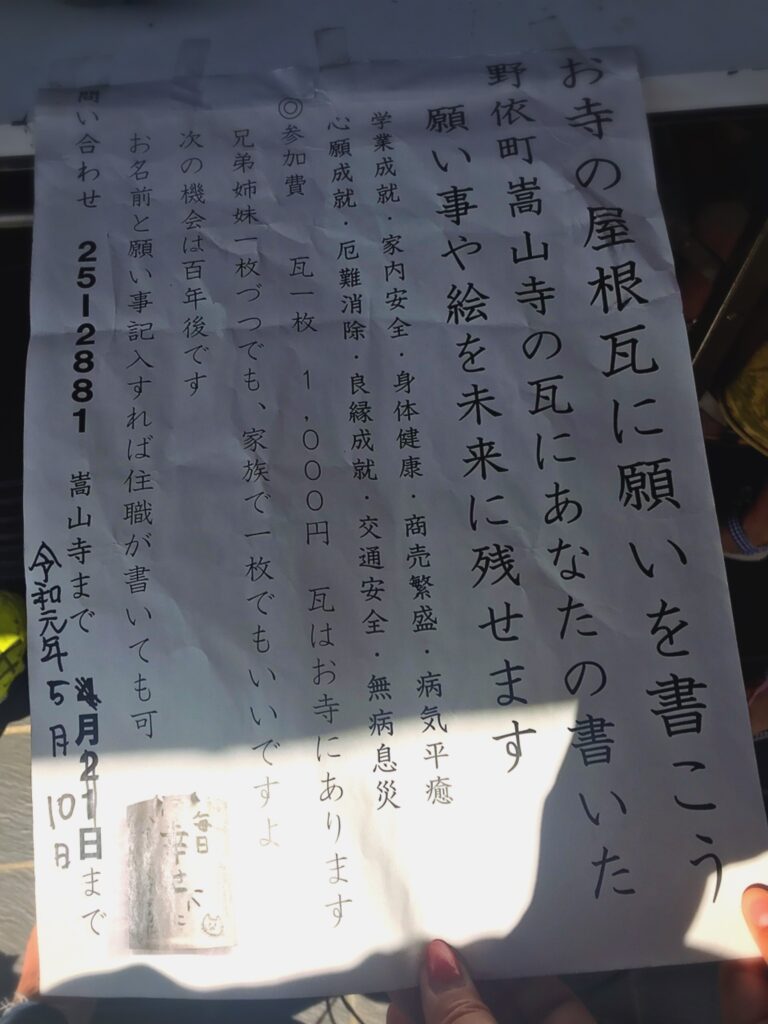 お寺の屋根瓦に願いを書こう
野依町嵩山寺の瓦にあなたの書いた
願い事や絵を未来に残せます
学業成就・家内安全・身体健康・商売繁盛・病気平癒
心願成就・厄難消除・良縁成就・交通安全・無病息災
◎参加費　瓦一枚　１,０００円　瓦はお寺にあります
兄弟姉妹一枚づつでも、家族で一枚でもいいですよ
次の機会は百年後です
お名前と願い事記入すれば住職が書いても可
問い合わせ　25-2881　嵩山寺まで　月21日まで
令和元年5月10日
毎日
幸せに